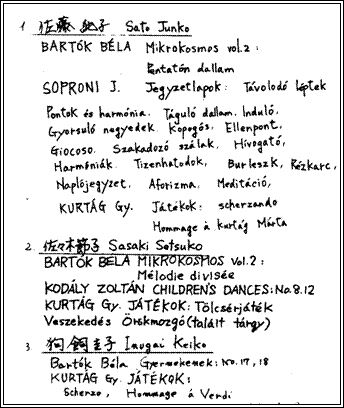 1. 佐藤 純子 Sato Junko
BARTÓK BÉLA Mikrokosmos vol.2:
Pentatón dallam
SOPRONI J. Jegyzetlapok: Távolodó léptek
Pontok és harmónia, Táguló dallam, Induló,
Gyorsuló negyedek, Kopogós, Ellenpont,
Giocoso, Szakadozó szálak, Hívogató,
Harmóniák, Tizenhatodok, Burleszk, Rézkarc,
Naplójegyzet, Aforizma, Meditáció,
KURTÁG Gy. Játékok: scherzando
Hommage à Kurtág Márta
2. 佐々木節子 Sasaki Setsuko
BARTÓK BÉLA MIKROKOSMOS Vol.2:
Mélodie divisée
KODÁLY ZOLTÁN CHILDREN'S DANCES: No.8.12
KURTÁG Gy. JÁTÉKOK: Tölcsérjáték
Veszekedés Örökmozgó (talált tárgy)
3. 狗飼圭子 Inugai Keiko
Bartók Béla Gyermekenek: No.17,18
KURTÁG Gy. JÁTÉKOK:
Scherzo, Hommage à Verdi